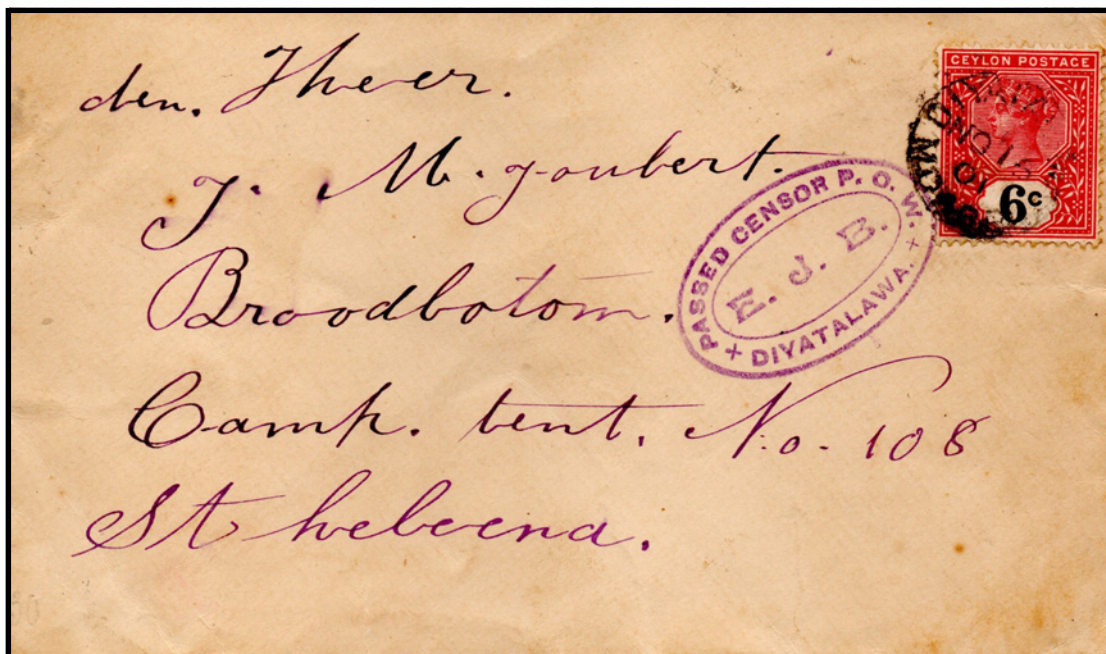 den. Theer.
J. M. Joubert.
Broodbotom.
Camp. tent. No. 108
St heleena.
PASSED CENSOR P. O. W.
E. J. B.
+ DIYATALAWA. +
CEYLON POSTAGE
6c
NO 15
01